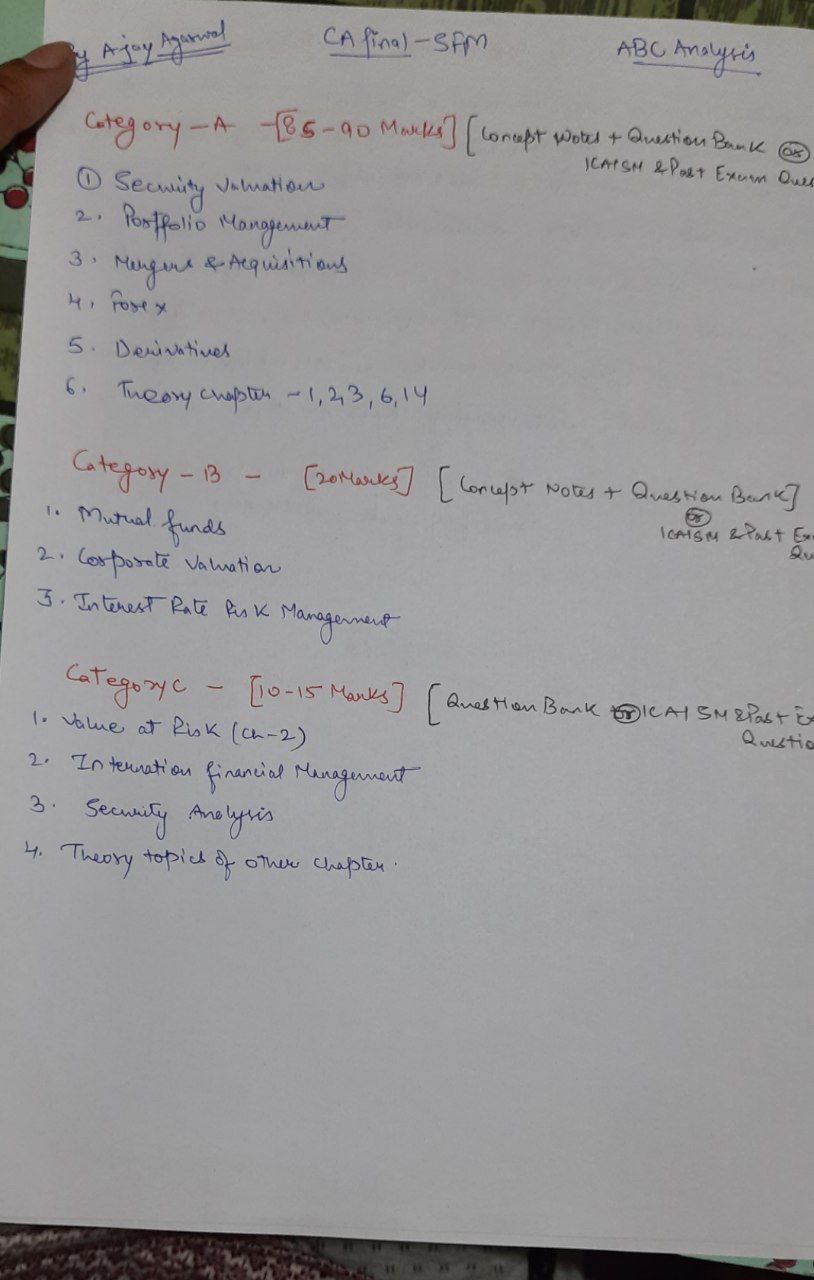 By Ajay Agarwal CA final - SFM ABC Analysis
Category - A - [85-90 Marks] [Concept Notes + Question Bank or
ICAI SM & Past Exam Ques
1 Security Valuation
2. Portfolio Management
3. Mergers & Acquisitions
4. Forex
5. Derivatives
6. Theory Chapter - 1, 2, 3, 6, 14
Category - B - [20 Marks] [Concept Notes + Question Bank]
or
1. Mutual funds
ICAI SM & Past Exa
Qu
2. Corporate Valuation
3. Interest Rate Risk Management
Category C - [10-15 Marks] [Question Bank or ICAI SM & Past Ex
Questio
1. Value at Risk (Ch-2)
2. Internation financial Management
3. Security Analysis
4. Theory topics of other chapter.